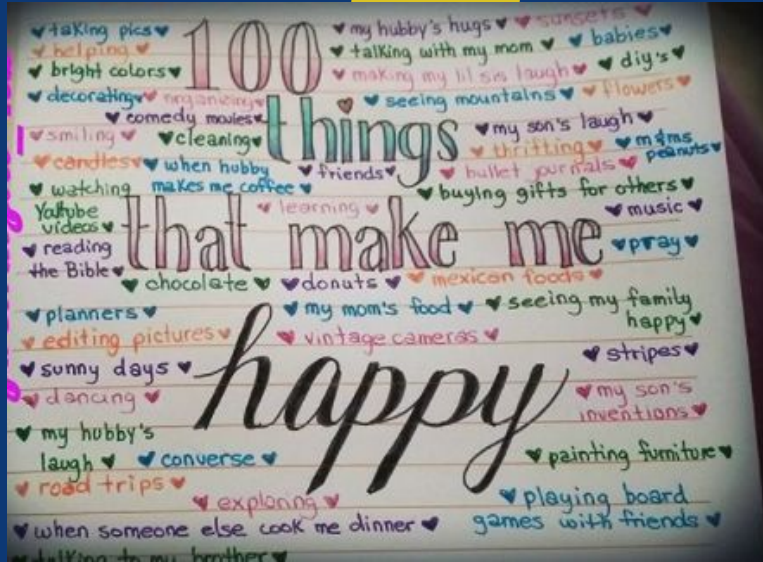 100
things
that make me
happy
♥ taking pics ♥
♥ helping ♥
♥ bright colors ♥
♥ decorating ♥
♥ organizing ♥
♥ comedy movies ♥
♥ smiling ♥
♥ cleaning ♥
♥ candles ♥
♥ when hubby
makes me coffee ♥
♥ friends ♥
♥ watching
Youtube
videos ♥
♥ learning ♥
♥ reading
the Bible ♥
♥ my hubby's hugs ♥
♥ sunsets ♥
♥ talking with my mom ♥
♥ babies ♥
♥ making my lil sis laugh ♥
♥ diy's ♥
♥ seeing mountains ♥
♥ flowers ♥
♥ my son's laugh ♥
♥ thrifting ♥
♥ m&ms
peanuts ♥
♥ bullet journals ♥
♥ buying gifts for others ♥
♥ music ♥
♥ pray ♥
♥ chocolate ♥
♥ donuts ♥
♥ mexican foods ♥
♥ planners ♥
♥ my mom's food ♥
♥ seeing my family
happy ♥
♥ editing pictures ♥
♥ vintage cameras ♥
♥ sunny days ♥
♥ stripes ♥
♥ dancing ♥
♥ my son's
inventions ♥
♥ my hubby's
laugh ♥
♥ converse ♥
♥ painting furniture ♥
♥ road trips ♥
♥ exploring ♥
♥ playing board
games with friends ♥
♥ when someone else cook me dinner ♥
♥ talking to my brother ♥